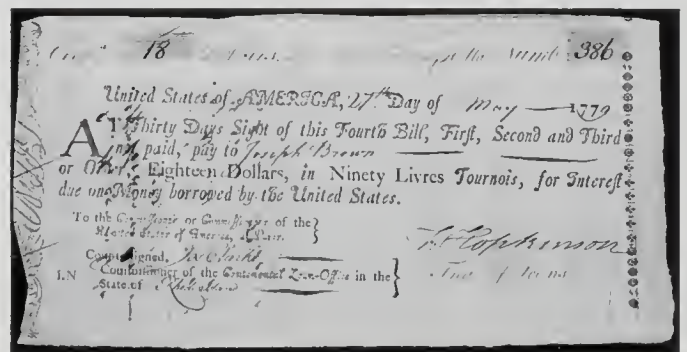 18 386
United States of AMERICA, 27th Day of May 1779
AT Thirty Days Sight of this Fourth Bill, First, Second and Third
not paid, pay to Joseph Brown
or Order, Eighteen Dollars, in Ninety Livres Tournois, for Interest
due on Money borrowed by the United States.
To the Commissioner or Commissioners of the
United States of America, at Paris.
Countersigned,
I.N Commissioner of the Continental Loan-Office in the
State of
F Hopkinson
Treas. of Loans